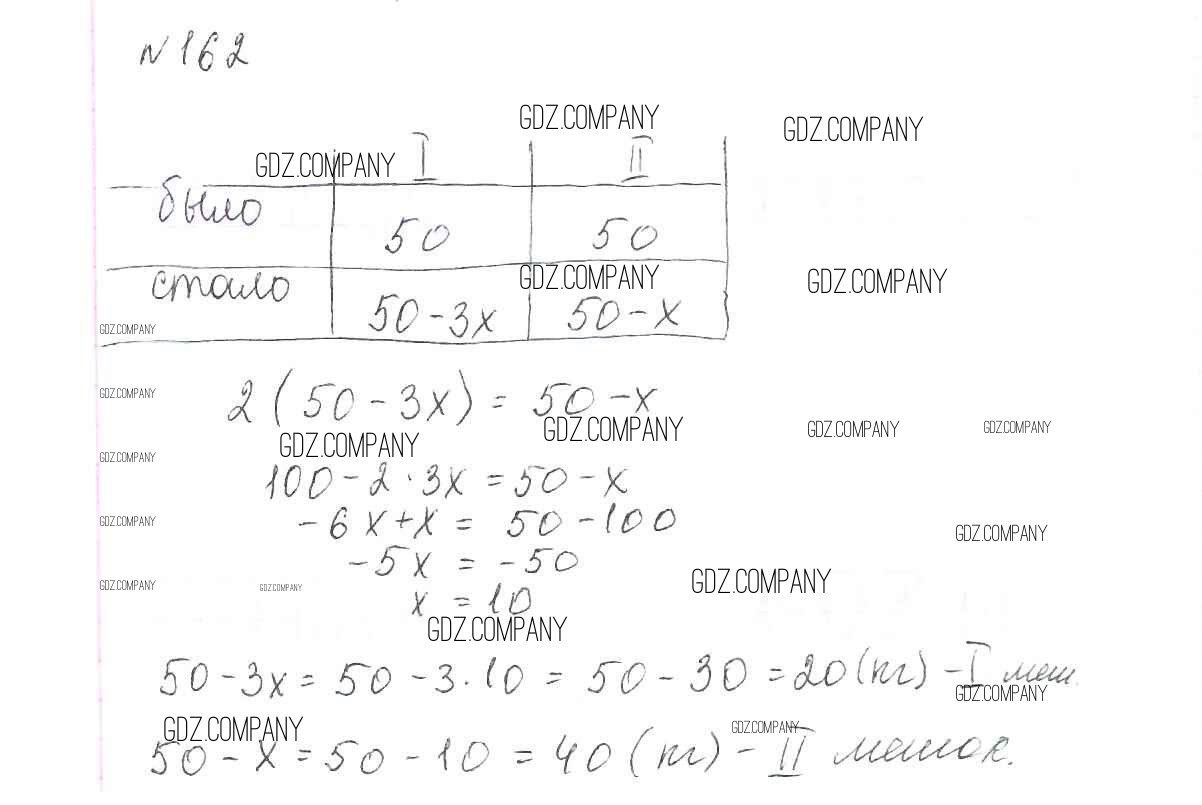 №162
GDZ.COMPANY
GDZ.COMPANY
GDZ.COMPANY I II
было 50 50
GDZ.COMPANY GDZ.COMPANY
стало 50-3x 50-x
GDZ.COMPANY
GDZ.COMPANY
2(50-3x) = 50-x
GDZ.COMPANY GDZ.COMPANY GDZ.COMPANY
GDZ.COMPANY
GDZ.COMPANY
100-2·3x=50-x
GDZ.COMPANY
-6x+x = 50-100
GDZ.COMPANY
-5x = -50
GDZ.COMPANY GDZ.COMPANY GDZ.COMPANY
x = 10
GDZ.COMPANY
50-3x = 50-3·10 = 50-30 = 20(кг) - I меш.
GDZ.COMPANY
GDZ.COMPANY GDZ.COMPANY
50-x = 50-10 = 40(кг) - II мешок.